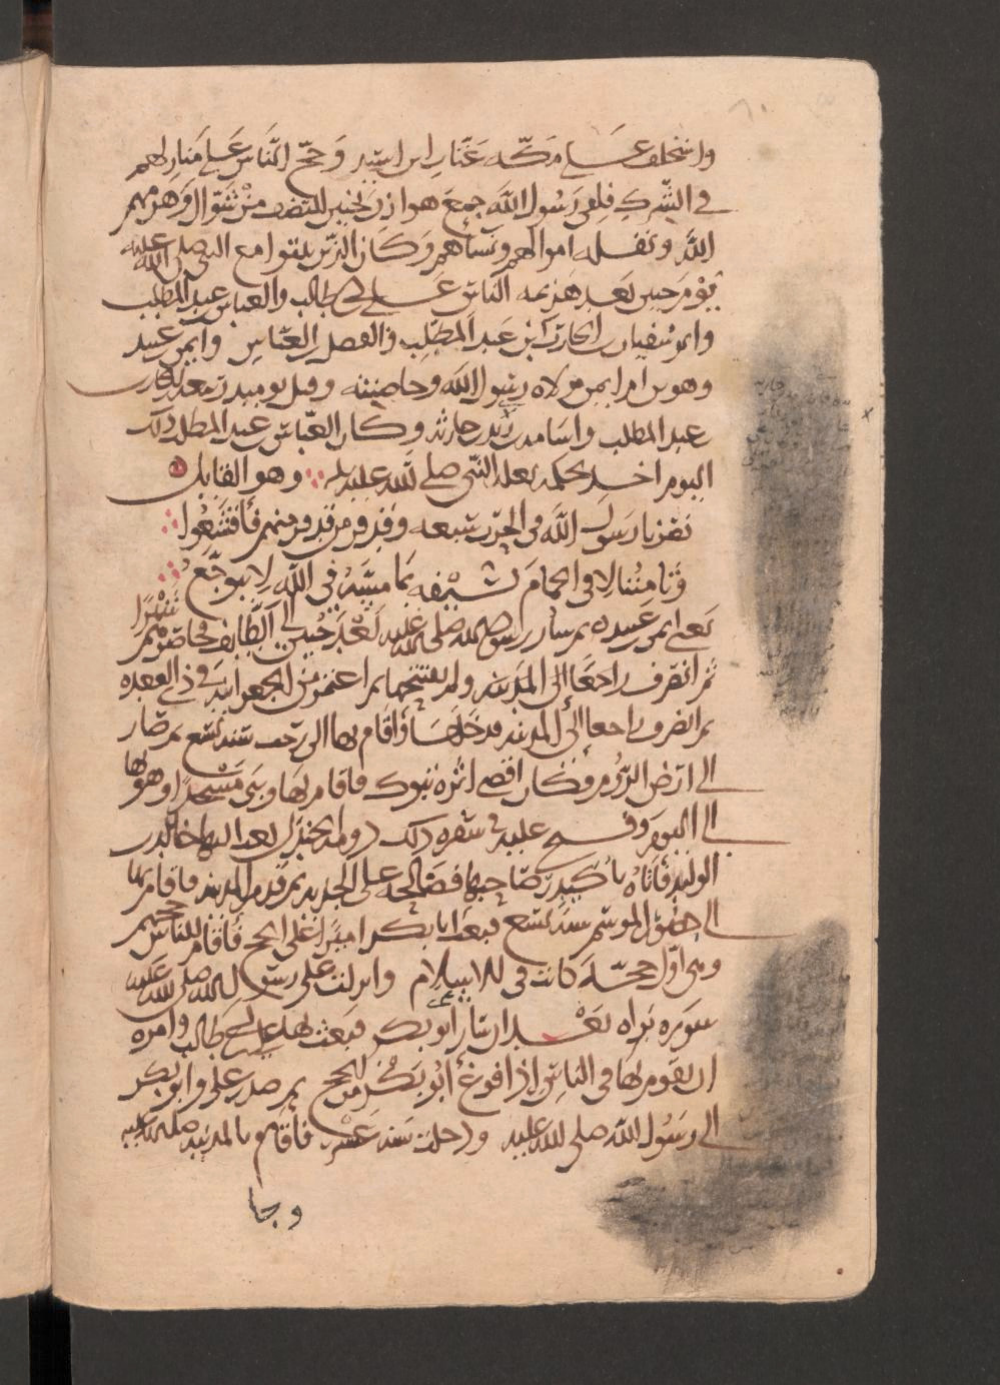 واستخلف على مكة عتاب ابن اسيد وحج الناس على منازلهم
في الشرك فلقى رسول الله جمع هوازن بحنين للنصف من شوال وهزمهم
الله ونفله اموالهم ونساهم وكان الذين بقوا مع النبي صلى الله عليه
يوم حنين بعد هزيمة الناس على بن ابي طالب والعباس بن عبد المطلب
وابو سفيان بن الحارث ابن عبد المطلب والفضل بن العباس وايمن بن عبيد
وهو بن ام ايمن مولاة رسول الله وحاضنته وقيل يوميذ ربيعة بن الحارث
عبد المطلب واسامة بن زيد بن حارثة وكان العباس بن عبد المطلب ذلك
اليوم اخذ بحكمة بغلة النبي صلى الله عليه وهو القايل
نصرنا رسول الله في الحرب سبعة وقد فر من قد فر منهم فاقشعوا
وثامننا لاقى الحمام بسيفه بما مسه في الله لا يتوجع
يعني ايمن بن عبيد ثم سار رسول الله صلى الله عليه بعد حنين الى الطايف فحاصرهم شهرا
ثم انصرف راجعا الى المدينة ولم يفتتحها ثم اعتمر من الجعرانة في ذي القعدة
ثم انصرف راجعا الى المدينة فدخلها واقام بها الى رجب سنة تسع ثم صار
الى ارض الروم وكان اقصى اثره تبوك فاقام بها وبنى مسجدا وهو بها
الى اليوم وفتح عليه في سفره ذلك دومة الجندل بعث اليها خالد بن
الوليد فاتاه باكيدر صاحبها فصالحه على الجزية ثم قدم المدينة فاقام بها
الى حضور الموسم سنة تسع فبعث ابا بكر اميرا على الحج فاقام للناس حجهم
وهي اول حجة كانت في الاسلام وانزلت على رسول الله صلى الله عليه
سورة براه بعد ان سار ابو بكر فبعث بها مع علي بن ابي طالب وامره
ان يقوم بها في الناس اذا فرغ ابو بكر من الحج ثم صدر علي وابو بكر
الى رسول الله صلى الله عليه ودخلت سنة عشر فاقام بالمدينة صلى الله عليه
وجا